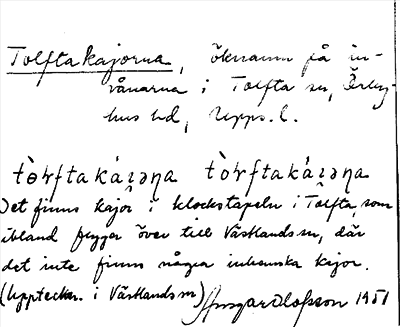 Tolftakajorna, öknamn på in-
vånarna i Tolfta sn, Örby-
hus hd, Upps. l.
Det finns kajor i klockstapeln i Tolfta, som
ibland flyger över till Västlands sn, där
det inte finns några inhemska kajor.
(Uppteckn. i Västlands sn) Ansgar Olofsson 1951